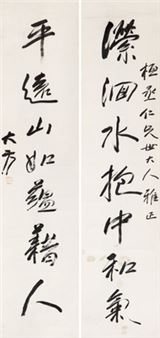 瀠洄水抱中和氣
極丞仁兄世大人雅正
平遠山如蘊藉人
大方